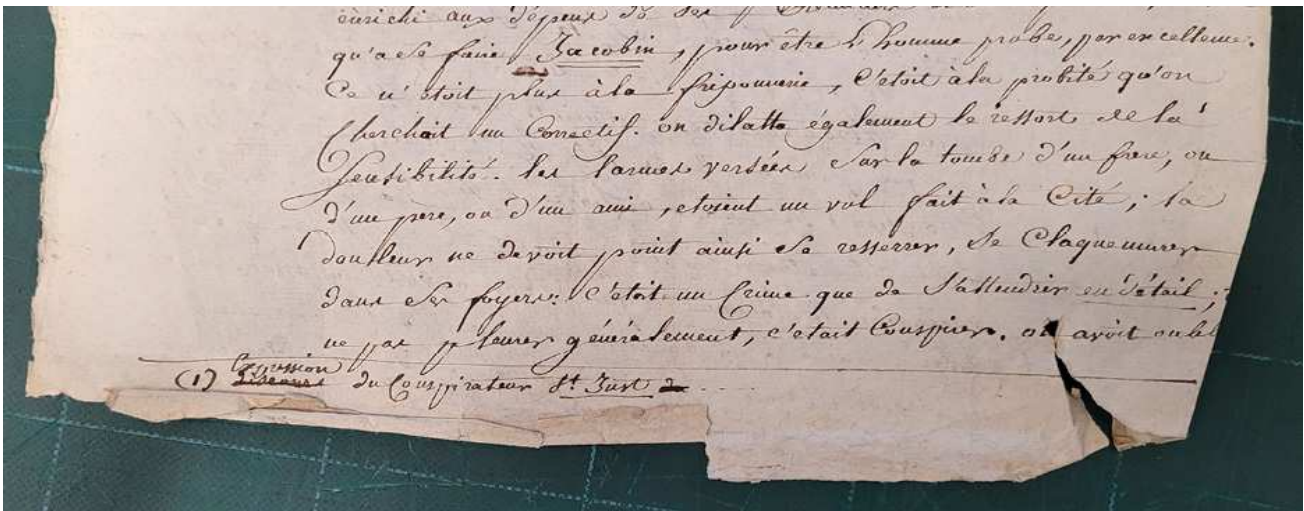 enrichi aux dépens de ses
qu'à se faire Jacobin, pour être l'homme probe, par excellence.
Ce n'étoit plus à la friponnerie, c'étoit à la probité qu'on
Cherchait un Correctif. on dilatta également le ressort de la
Sensibilité. les larmes versées sur la tombe d'un frere, ou
d'un pere, ou d'un ami, etoient un vol fait à la Cité; la
douleur ne devoit point ainsi se resserrer, se Claquemurer
dans ses foyers: c'étoit un Crime que de s'attendrir en détail;
ne pas pleurer généralement, c'était Conspirer. on avoit
Expression
(1) Discours du Conspirateur St. Just